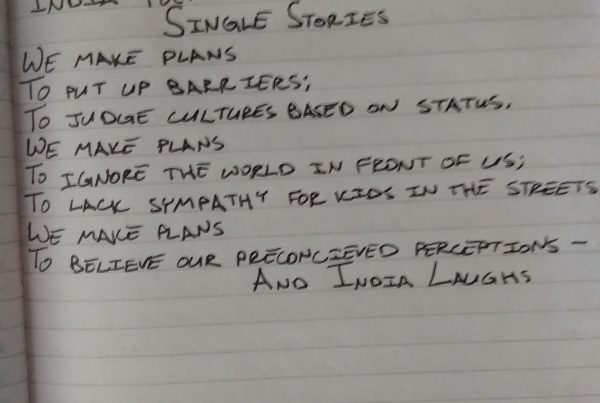 INDIA
SINGLE STORIES
WE MAKE PLANS
TO PUT UP BARRIERS;
TO JUDGE CULTURES BASED ON STATUS.
WE MAKE PLANS
TO IGNORE THE WORLD IN FRONT OF US;
TO LACK SYMPATHY FOR KIDS IN THE STREETS
WE MAKE PLANS
TO BELIEVE OUR PRECONCIEVED PERCEPTIONS –
AND INDIA LAUGHS